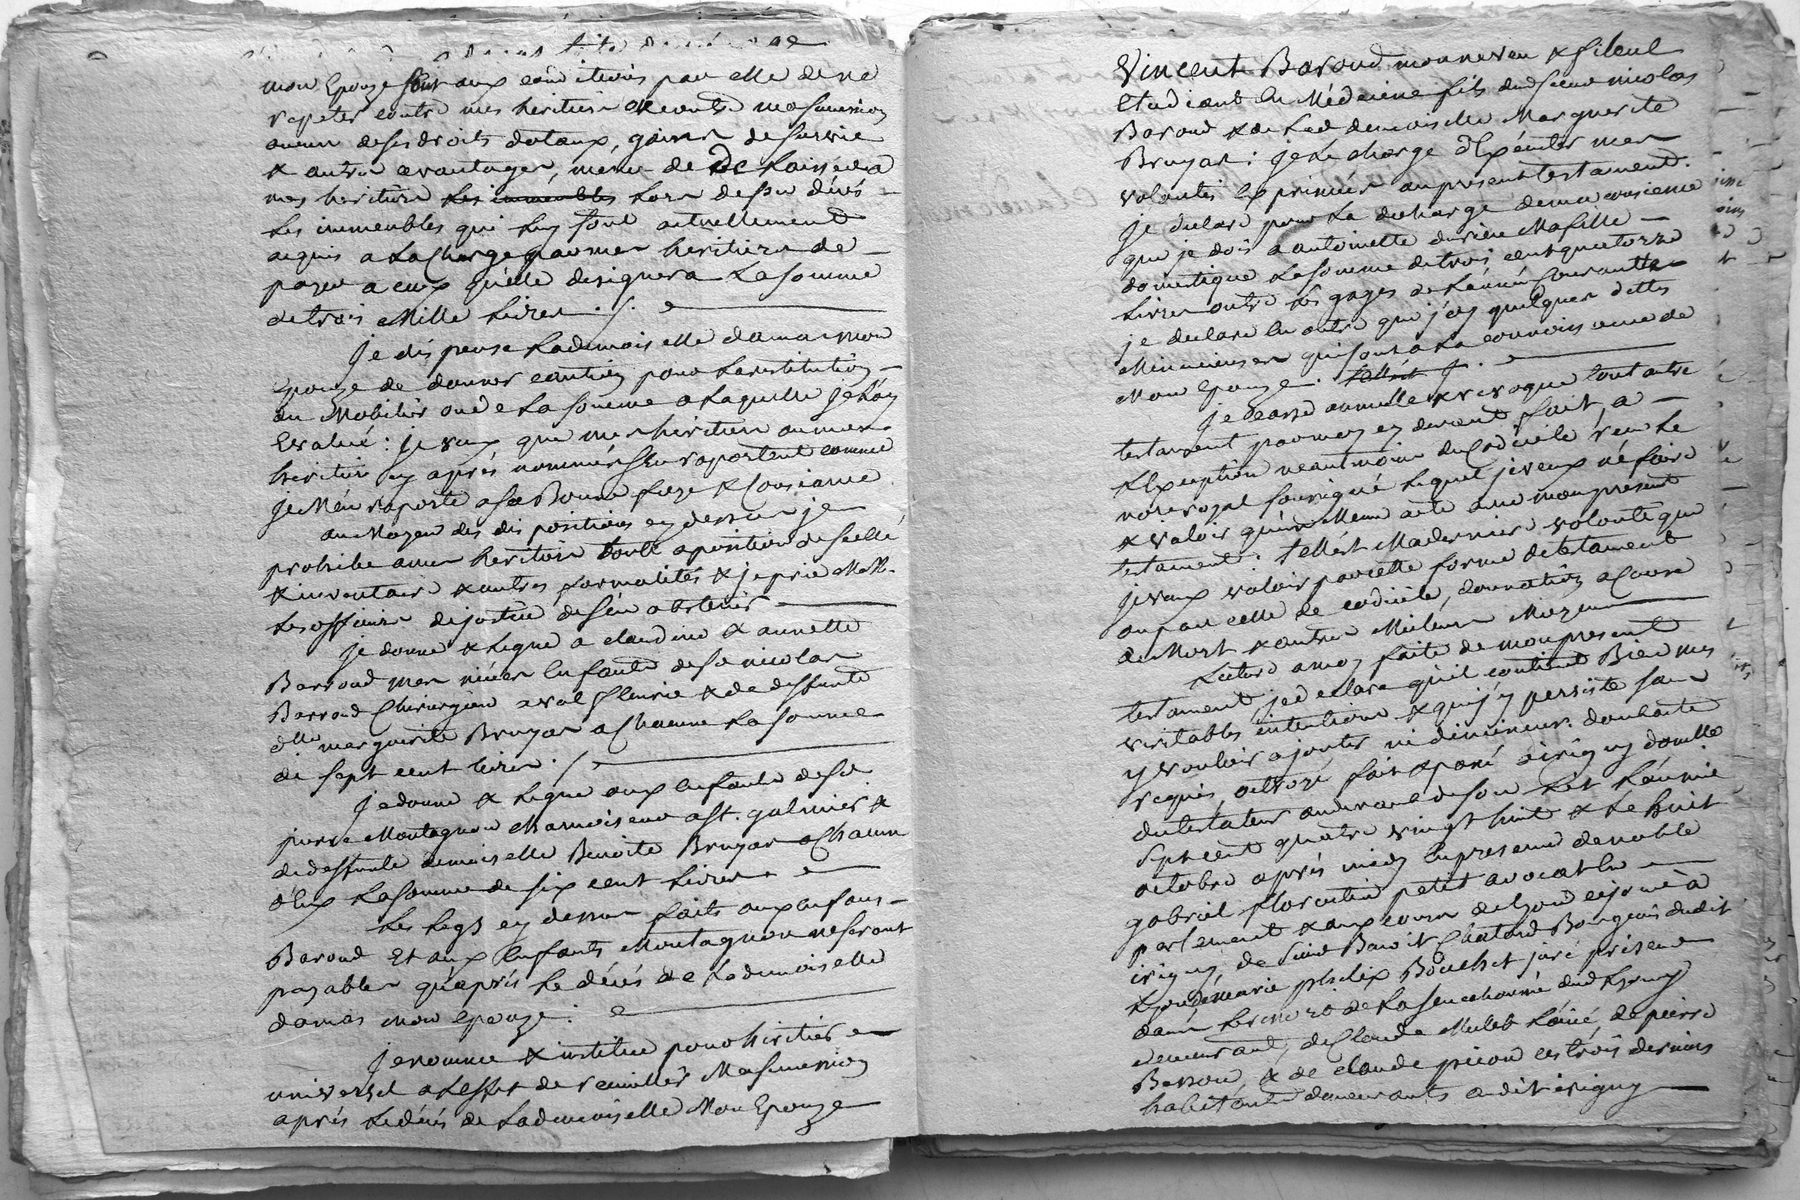 mon Epouze sont aux conditions par elle de ne
repeter contre mes heritiers et contre ma succession
aucun de ses droits dotaux, gains de survie
& autres avantages, meme de de laisser a
mes heritiers les immeubles lors de son décés
les immeubles qui luy sont actuellement
acquis a la charge par mes heritiers de
payer a ceux qu'elle designera la somme
de trois Mille Livres ./.
Je dispense lademoiselle damas mon
Epouze de donner caution pour la restitution
du Mobilier ou de la somme a laquelle je l'ay
Evalué : je veux que mes heritiers ou mon
heritier cy aprés nommés s'en raportent comme
je m'en raporte a sa Bonne foye & Consiance
au Moyen des dispositions cy dessus je
prohibe a mes heritiers toute aposition de scellé
& inventaire & autres formalités & je prie MM.
les officiers de justice de s'en abstenir
je donne & legue a claudine & annette
Baroud mes niéces Enfants de sr nicolas
Baroud Chirurgien a valsleurie & de deffunte
dlle marguerite Bruyas a Chacune la somme
de sept cent livres ./.
Je donne & legue aux Enfants de sr
pierre Montagnon chamoiseur a st. galmier &
de deffunte demoiselle Benoite Bruyas a Chacun
d'Eux la somme de six cent livres
les legs cy dessus faits aux enfans
Baroud Et aux Enfants Montagnon ne seront
payables qu'aprés le décés de lademoiselle
damas mon épouze .
je nomme & institue pour heritier
universel a l'effet de recueillir Ma succession
aprés le décés de lademoiselle Mon Epouze
Vincent Baroud mon neveu & filleul
Etudiant En Médecine fils dud sieur nicolas
Baroud & de lad demoiselle Marguerite
Bruyas : je le charge d'Exécuter mes
volontés Exprimées au present testament.
je declare pour la decharge de ma consience
que je dois a antoinette Ma fille
domestique la somme de trois cent quatorze
Livres outre les gages de l'année courante
je declare En outre que j'ay quelques dettes
Minucieuses qui sont a la connoissance de
Mon Epouze . tellest ./.
je casse annulle & revoque tout autre
testament par moy cy devant fait, a
l'Exception neantmoins du Codicile reçu le
nore royal soussigné lequel je veux né faire
& valoir qu'un Meme acte avec mon present
testament : tellest Ma derniere volonté que
je veux valoir par cette forme de testament
ou par celle de codicile, donnation a Cause
de Mort & autres Meilleurs Moyens
Lecture a moy faite de mon present
testament je declare qu'il contient Bien mes
veritables intentions & que j'y persiste sans
y vouloir ajouter ni diminuer. dont acte
requis octroyé fait & passé a irigny domicile
du testateur au devant de son Lit L'an mil
sept cent quatre vingt huit & le huit
octobre aprés midy En presence de noble
gabriel florentin petit avocat En
parlement & aux cours de Lyon residant à
irigny, de sieur Benoit Chatard Bourgeois dudit
philix Bouchet juré priseur
dans de la senechaussé dud Lyon y
demeurant, de Claude Mulet L'ainé, de pierre
Besson, & de claude picon ces trois derniers
habitants demeurants audit irigny